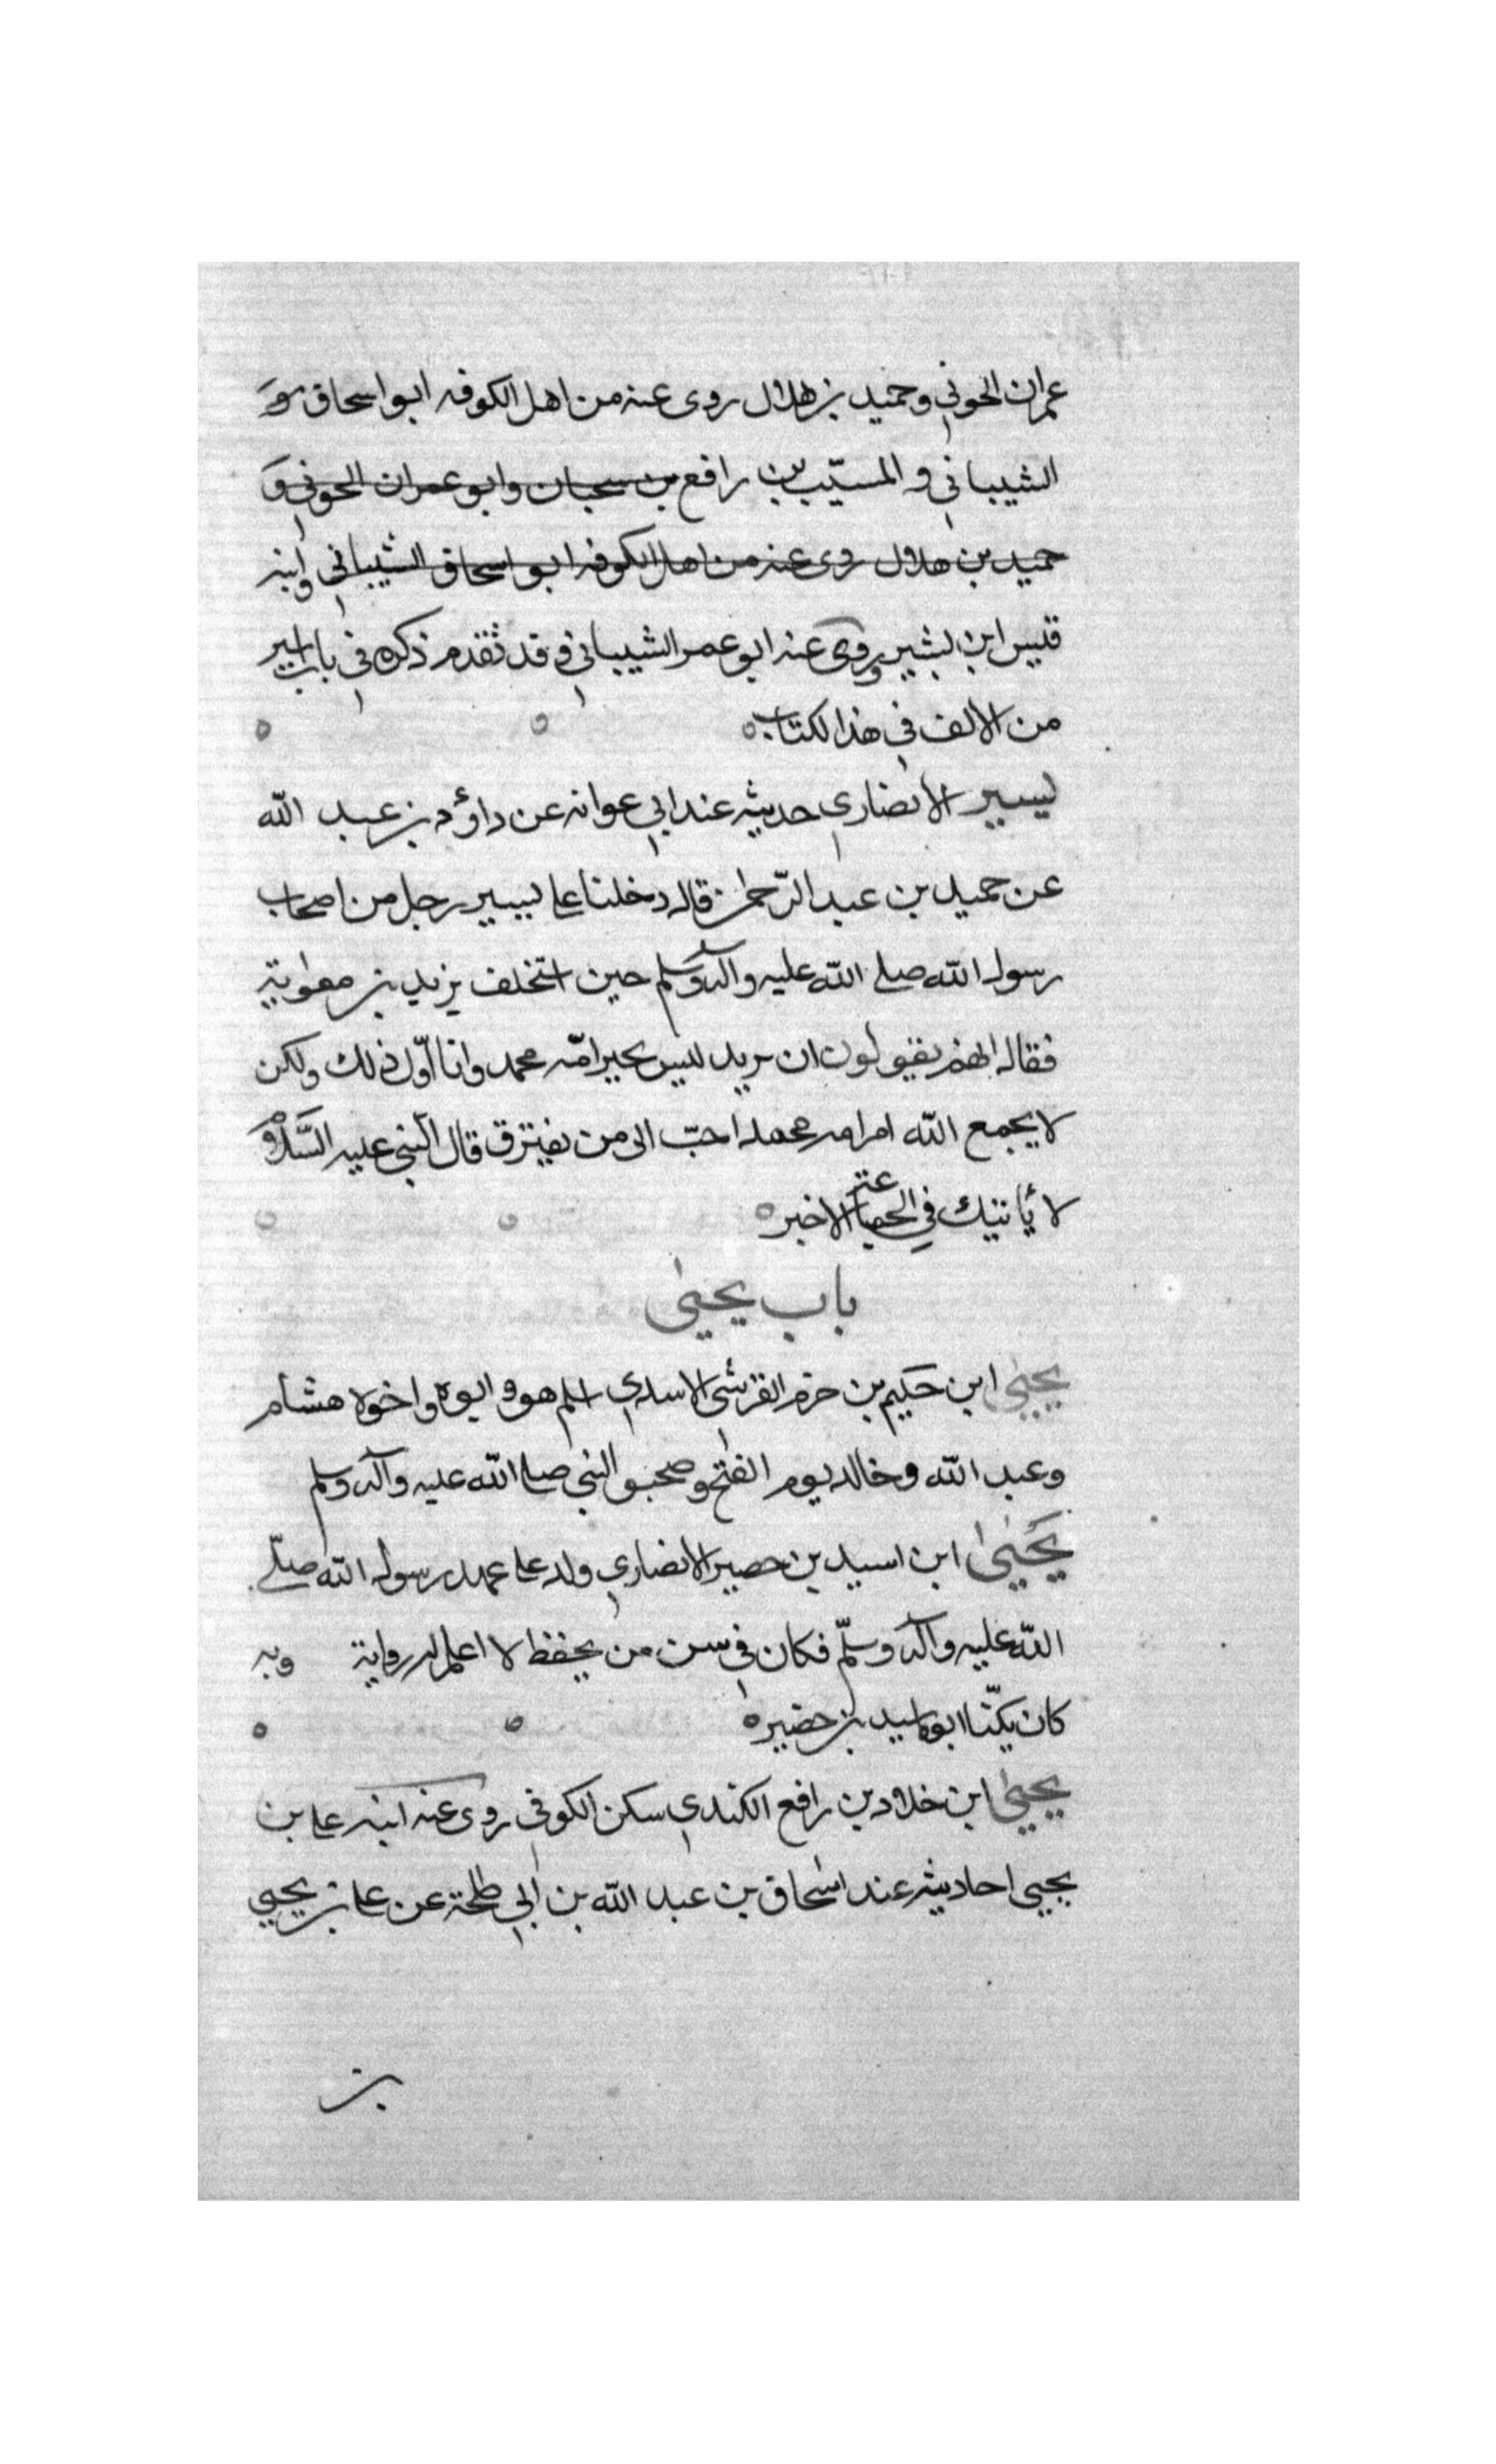 عمران الجوني وحميد بن هلال روى عنه من اهل الكوفه ابو اسحاق و
الشيباني و المسيّب بن رافع بن سحبان وابو عمران الجوني و
حميد بن هلال روى عنه من اهل الكوفه ابو اسحاق الشيباني وابنه
قيس ابن بشير وروى عنه ابو عمر الشيباني و قد تقدم ذكره في باب اسير
من الالف في هذا لكتاب
يسير الانصاري حديثه عند ابي عوانه عن داؤد بن عبد الله
عن حميد بن عبد الرّحمٰن قال دخلنا على يسير رجل من اصحاب
رسول الله صلى الله عليه وآله وسلم حين استخلف يزيد بن معٰوية
فقال انهم يقولون ان يزيد ليس بخير امّه محمد وانا اوّل ذلك ولكن
لا يجمع الله امر امه محمد احبّ الى من يفترق قال النبي عليه السّلام
لا يأتيك في الجماعة الا خير
باب يحيىٰ
يحيىٰ ابن حكيم بن حزم القرشى الاسدي اسلم هو و ابوه واخوه هشام
وعبد الله وخالد يوم الفتح وصحبو النبي صلى الله عليه وآله وسلم
يَحيىٰ ابن اسيد بن حصير الانصاري ولد على عهد رسول الله صلّى
الله عليه وآله وسلّم فكان في سن من يحفظ لا اعلم له رواية وبه
كان يكنّا ابوه اسيد بن حضير
يحيىٰ ابن خلاد بن رافع الكندي سكن الكوفي روى عنه ابنه على بن
يحيى احاديثه عند اسحاق بن عبد الله بن ابي طلحة عن على بن يحيى
بن